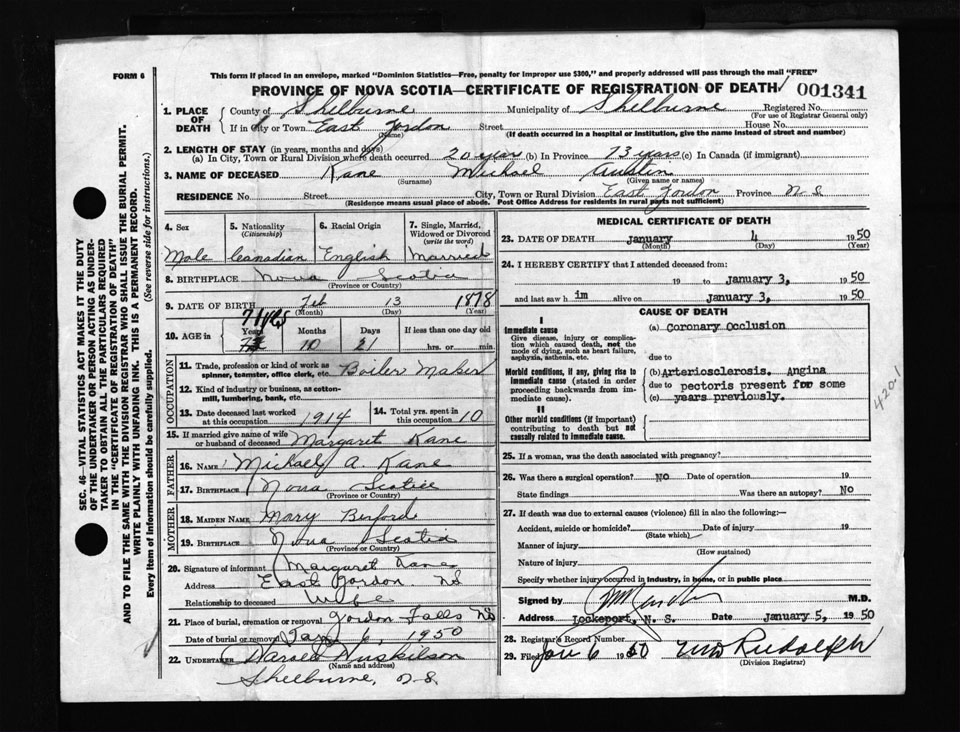 FORM 6
This form if placed in an envelope, marked "Dominion Statistics—Free, penalty for improper use $300," and properly addressed will pass through the mail "FREE"
PROVINCE OF NOVA SCOTIA—CERTIFICATE OF REGISTRATION OF DEATH 001341
1. PLACE OF DEATH
County of Shelburne Municipality of Shelburne Registered No.
(For use of Registrar General only)
If in City or Town East Jordon Street House No.
(Name) (If death occurred in a hospital or institution, give the name instead of street and number)
2. LENGTH OF STAY (in years, months and days)
(a) In City, Town or Rural Division where death occurred 20 years (b) In Province 73 years (c) In Canada (if immigrant)
3. NAME OF DECEASED Kane Michael Austin
(Surname) (Given name or names)
RESIDENCE No. Street City, Town or Rural Division East Jordon Province N S
(Residence means usual place of abode. Post Office Address for residents in rural parts not sufficient)
4. Sex
Male
5. Nationality
(Citizenship)
Canadian
6. Racial Origin
English
7. Single, Married, Widowed or Divorced
(write the word)
Married
8. BIRTHPLACE Nova Scotia
(Province or Country)
9. DATE OF BIRTH Feb 13 1878
(Month) (Day) (Year)
71 yrs
10. AGE in Years Months Days If less than one day old
10 21 hrs. or min.
OCCUPATION
11. Trade, profession or kind of work as spinner, teamster, office clerk, etc. Boiler Maker
12. Kind of industry or business, as cotton-mill, lumbering, bank, etc.
13. Date deceased last worked at this occupation 1914
14. Total yrs. spent in this occupation 10
15. If married give name of wife or husband of deceased Margaret Kane
FATHER
16. NAME Michael A. Kane
17. BIRTHPLACE Nova Scotia
(Province or Country)
MOTHER
18. MAIDEN NAME Mary Binford
19. BIRTHPLACE Nova Scotia
(Province or Country)
20. Signature of informant Margaret Kane
Address East Jordon NS
Relationship to deceased Wife
21. Place of burial, cremation or removal Jordon Falls NS
Date of burial or removal Jan 6, 1950
22. UNDERTAKER Harold Huskilson
(Name and address)
Shelburne, N.S.
MEDICAL CERTIFICATE OF DEATH
23. DATE OF DEATH January 4 1950
(Month) (Day) (Year)
24. I HEREBY CERTIFY that I attended deceased from:
19 to January 3, 1950
and last saw him alive on January 3, 1950
CAUSE OF DEATH
I
Immediate cause
Give disease, injury or complication which caused death, not the mode of dying, such as heart failure, asphyxia, asthenia, etc.
(a) Coronary Occlusion
due to
Morbid conditions, if any, giving rise to immediate cause (stated in order proceeding backwards from immediate cause).
(b) Arteriosclerosis. Angina
due to pectoris present for some
(c) years previously.
II
Other morbid conditions (if important) contributing to death but not causally related to immediate cause.
420-1
25. If a woman, was the death associated with pregnancy?
26. Was there a surgical operation? No Date of operation 19
State findings Was there an autopsy? No
27. If death was due to external causes (violence) fill in also the following:-
Accident, suicide or homicide? Date of injury 19
(State which)
Manner of injury
(How sustained)
Nature of injury
Specify whether injury occurred in industry, in home, or in public place
Signed by M.D.
Address Lockeport, N. S. Date January 5, 1950
28. Registrar's Record Number
29. Filed Jan 6 1950 Rudolph
(Division Registrar)
SEC. 46—VITAL STATISTICS ACT MAKES IT THE DUTY
OF THE UNDERTAKER OR PERSON ACTING AS UNDER-
TAKER TO OBTAIN ALL THE PARTICULARS REQUIRED
IN THE "CERTIFICATE OF REGISTRATION OF DEATH"
AND TO FILE THE SAME WITH THE DIVISION REGISTRAR WHO SHALL ISSUE THE BURIAL PERMIT.
WRITE PLAINLY WITH UNFADING INK. THIS IS A PERMANENT RECORD.
Every item of information should be carefully supplied. (See reverse side for instructions.)